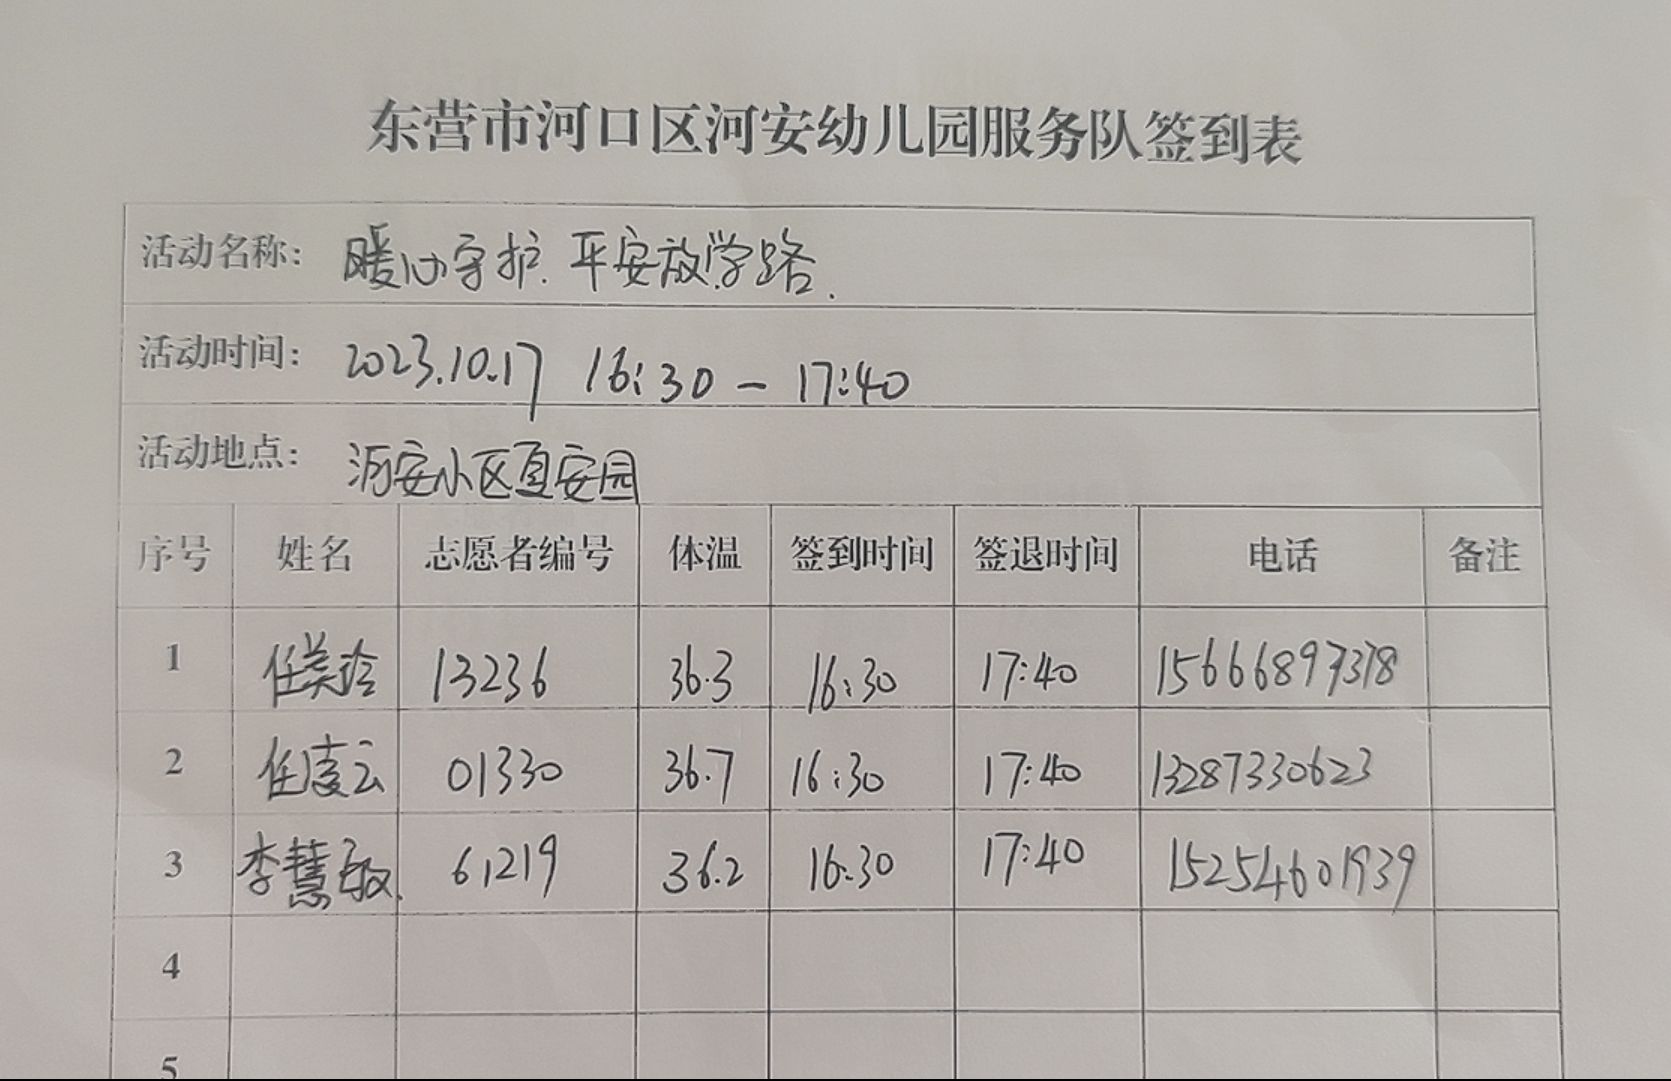 东营市河口区河安幼儿园服务队签到表
活动名称: 暖心守护.平安放学路.
活动时间: 2023.10.17 16:30-17:40
活动地点: 河安小区夏安园
序号 姓名 志愿者编号 体温 签到时间 签退时间 电话 备注
1 任美玲 13236 36.3 16:30 17:40 15666897378
2 任凌云 01330 36.7 16:30 17:40 13287330623
3 李慧敏. 61219 36.2 16:30 17:40 15254601939
4
5